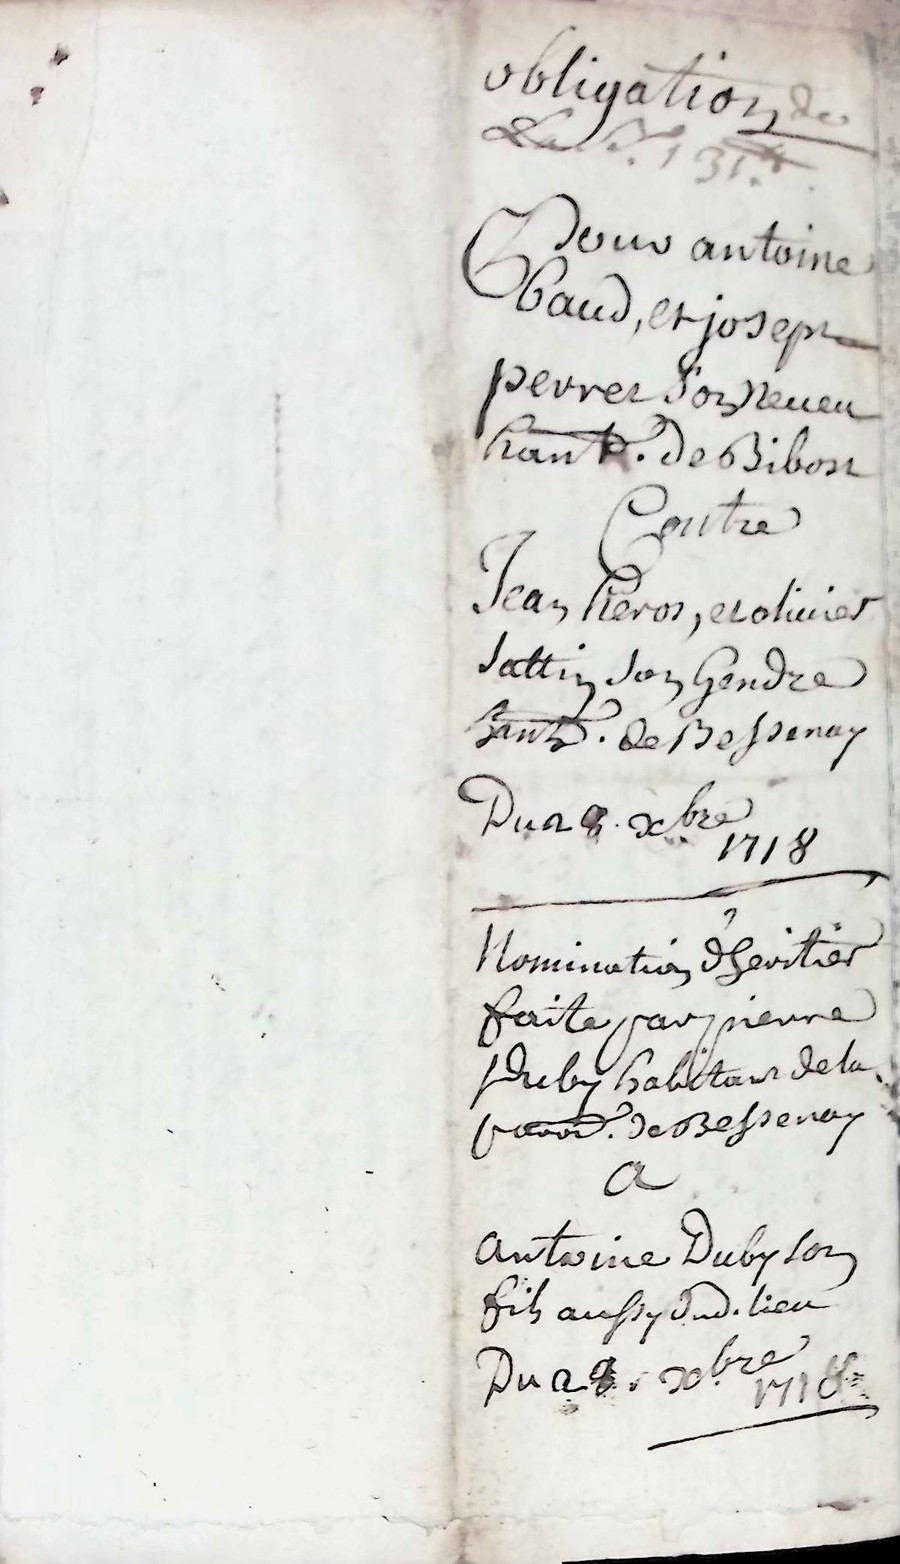 obligation de
La S. 131.tt
Pour antoine
baud, et joseph
perret son neveu
hant. de Bibost
Contre
Jean Peros, et olivier
sattin son gendre
hant. de Bessenay
Du 28. xbre
1718
Nomination d'heritier
faite par pierre
Duby habitant de la
parr. de Bessenay
A
antoine Duby son
fils aussy dud. lieu
Du 28. xbre
1718